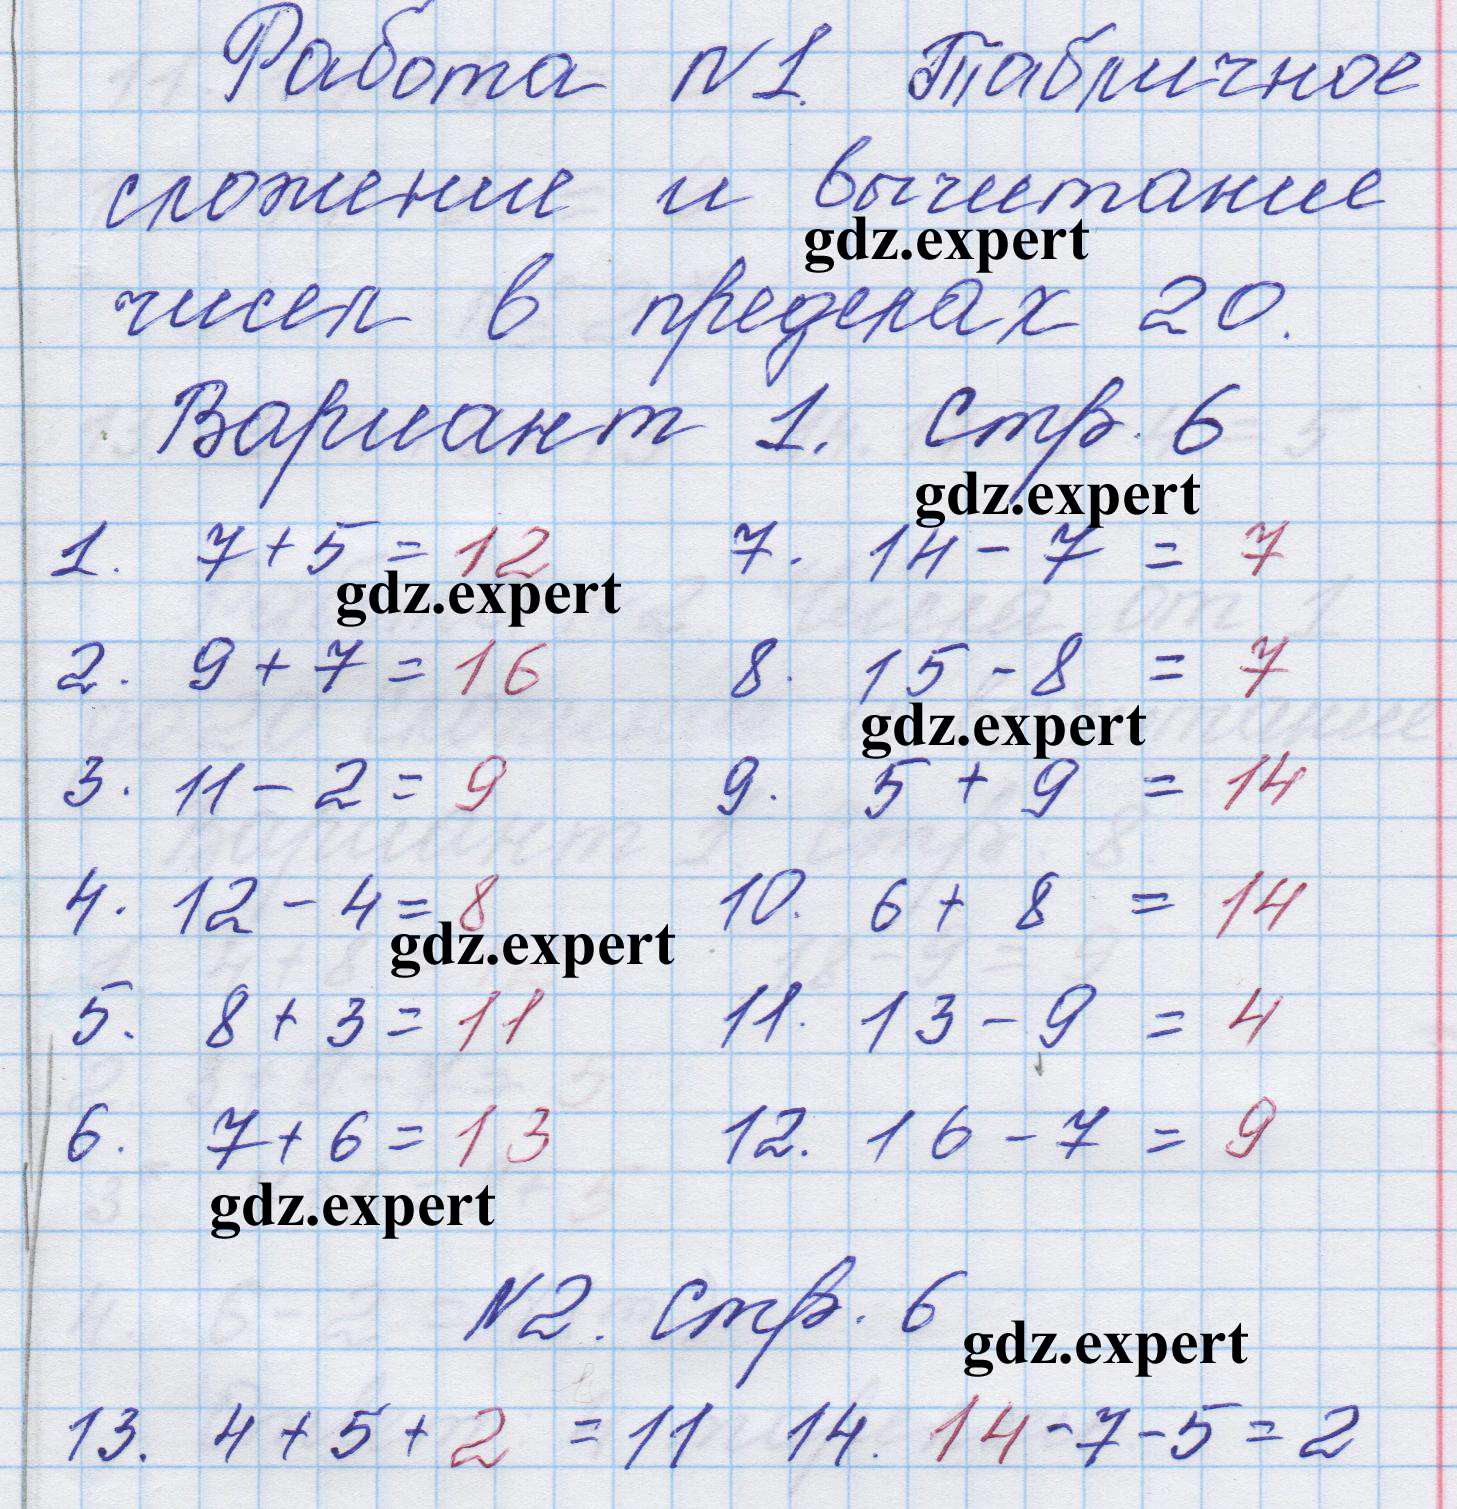 Работа №1. Табличное
сложение и вычитание
gdz.expert
чисел в пределах 20.
Вариант 1. Стр. 6
gdz.expert
1. 7 + 5 = 12 7. 14 - 7 = 7
gdz.expert
2. 9 + 7 = 16 8. 15 - 8 = 7
gdz.expert
3. 11 - 2 = 9 9. 5 + 9 = 14
4. 12 - 4 = 8 10. 6 + 8 = 14
gdz.expert
5. 8 + 3 = 11 11. 13 - 9 = 4
6. 7 + 6 = 13 12. 16 - 7 = 9
gdz.expert
№2. Стр. 6
gdz.expert
13. 4 + 5 + 2 = 11 14. 14 - 7 - 5 = 2